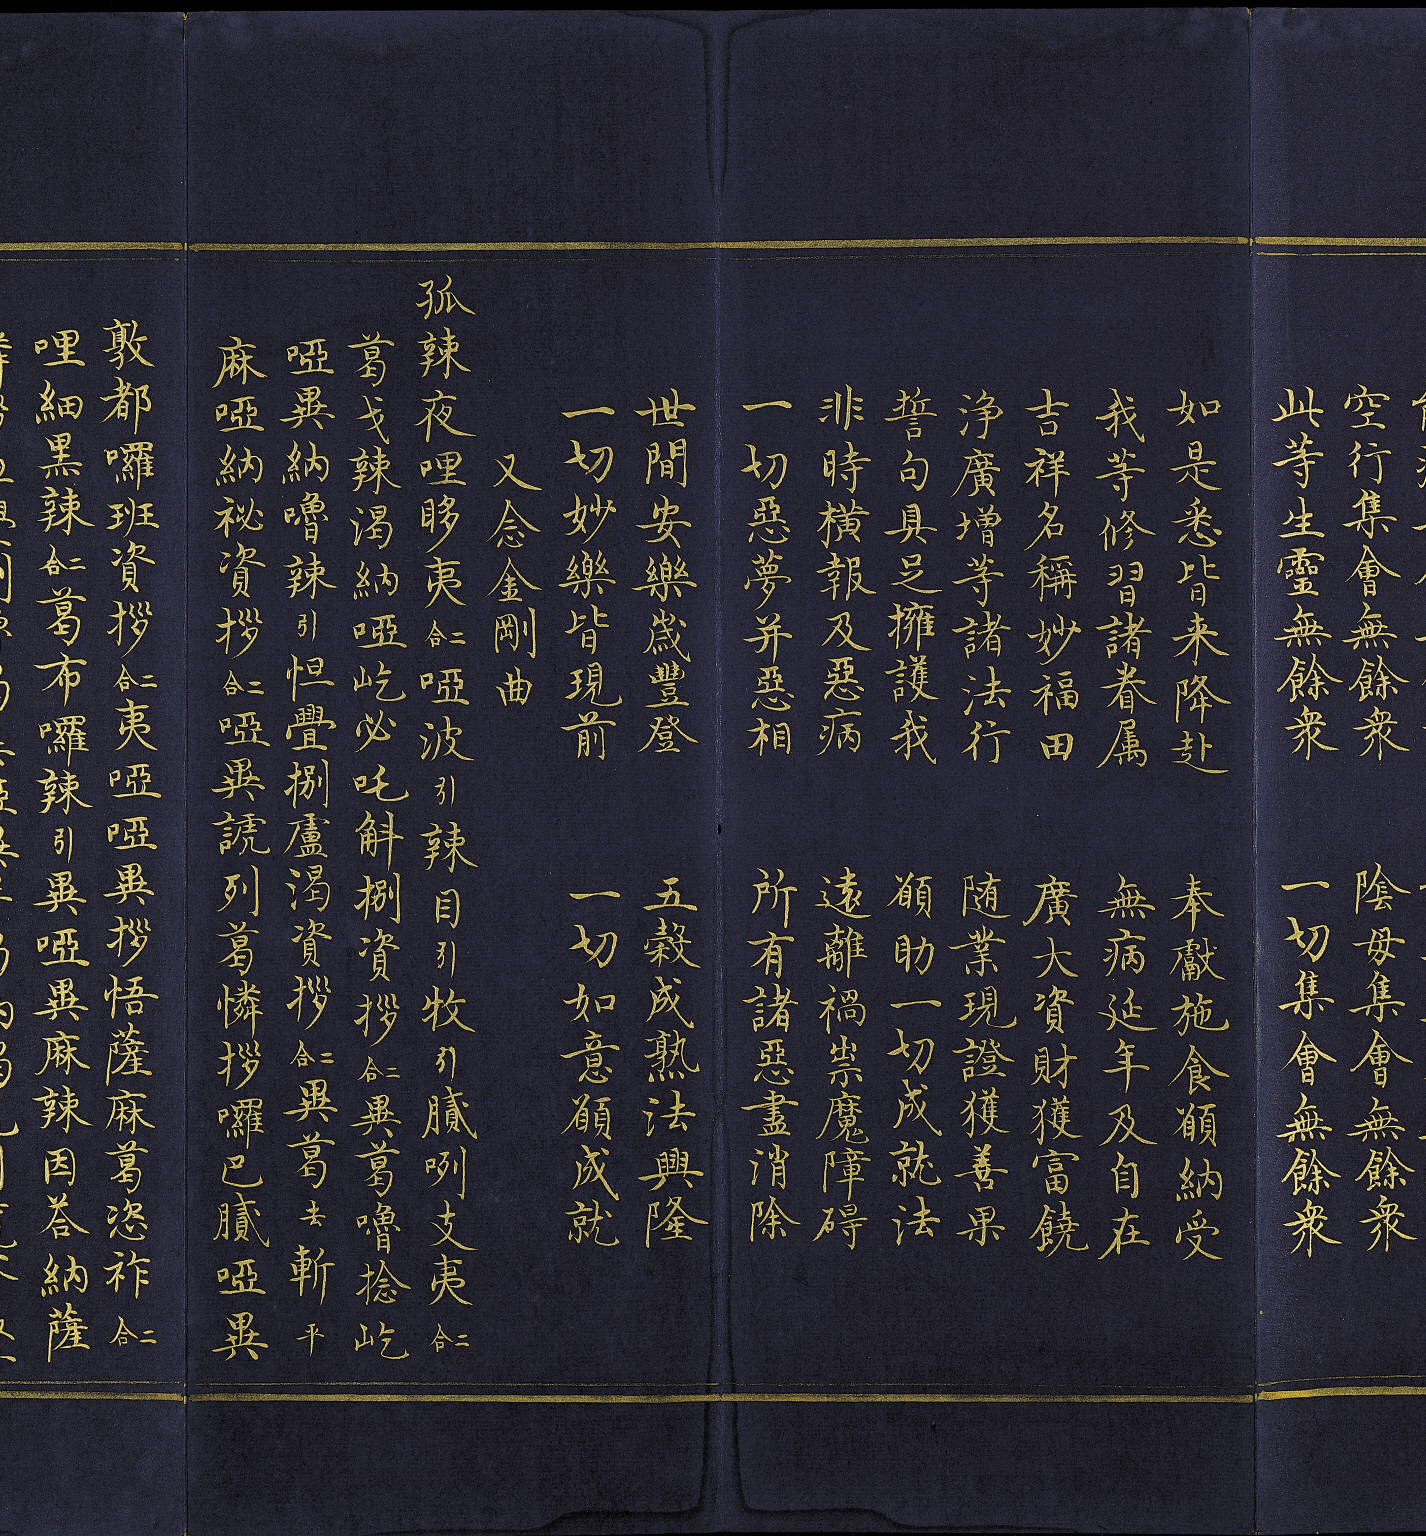 空行集會無餘衆　陰母集會無餘衆
此等生靈無餘衆　一切集會無餘衆
如是悉皆来降赴　奉獻施食願納受
我等修習諸眷属　無病延年及自在
吉祥名稱妙福田　廣大資財獲富饒
净廣增等諸法行　随業現證獲善果
誓句具足擁護我　願助一切成就法
非時横報及惡病　遠離禍祟魔障碍
一切惡夢并惡相　所有諸惡盡消除
世間安樂歲豐登　五穀成熟法興隆
一切妙樂皆現前　一切如意願成就
又念金剛曲
孤辣夜哩哆夷二合啞波引辣目引牧引膩咧支夷二合
葛戈辣渴納啞屹必吒斛捌資拶二合異葛嚕捻屹
啞異納嚕辣引怛疊捌盧渴資拶二合異葛去斬平
麻啞納祕資拶二合啞異謊列葛憐拶囉巴膩啞異
敦都囉班資拶二合夷啞啞異拶悟薩麻葛恣祚二合
哩細黑辣二合葛布囉辣引異啞異麻辣因荅納薩